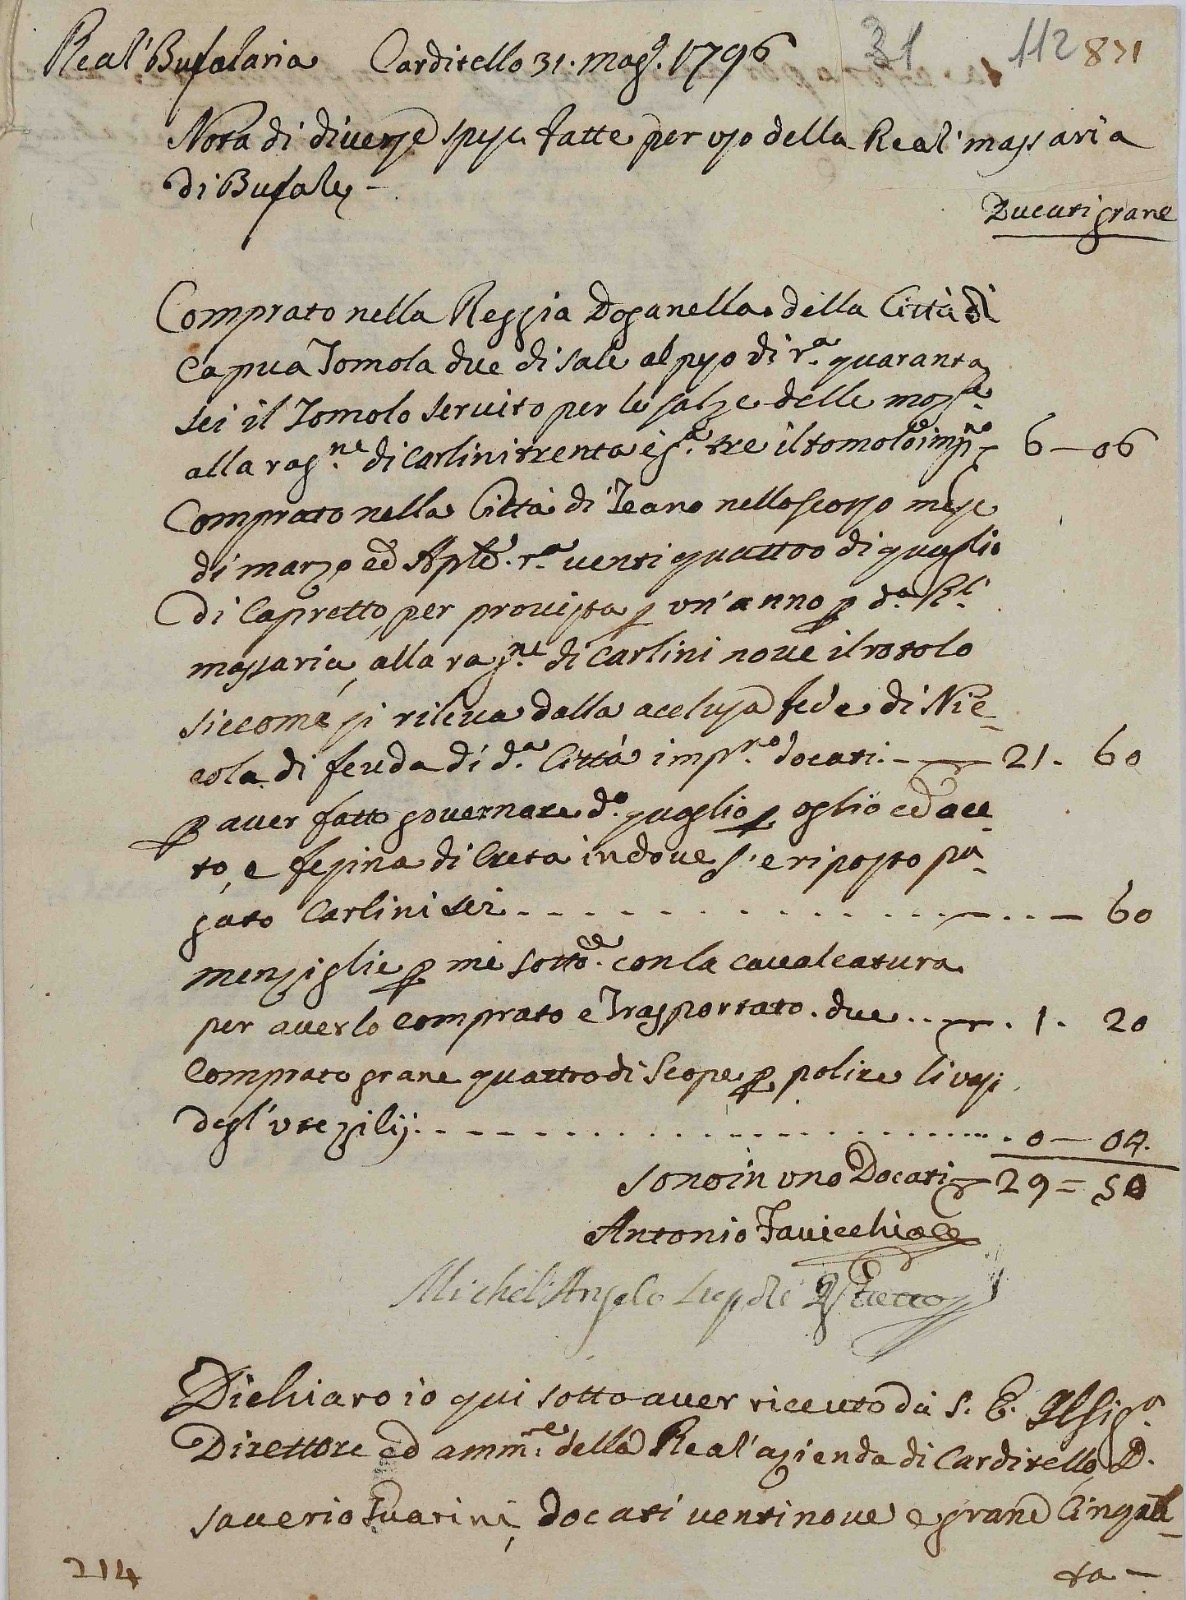 31 112 871
Real' Bufalaria Carditello 31. mag.o 1796
Nota di diverse spese fatte per uso della Real' massaria
di Bufale -
Ducati grane
Comprato nella Reggia Doganella della Città di
Capua Tomola due di sale al peso di r.a quaranta
sei il Tomolo servito per le salze delle mozz.e
alla rag.ne di Carlini trenta e g.a tre il tomolo imp.no 6 - 06
Comprato nella Città di Teano nello scorso mese
di marzo ed Aple. r.a venti quattro di quaglio
di Capretto per provista p un'anno p d.a R.l
massaria, alla rag.ne di Carlini nove il rotolo
siccome si rileva dalla acclusa fede di Nic=
cola di feuda di d.a Città imp.no docati. - 21. 60
p aver fatto governare d.o quaglio p oglio ed ace=
to, e fesina di Creta indove s'e riposto pa=
gato Carlini sei - 60
menziglie p me sotto. con la cavalcatura
per averlo comprato e Trasportato. due . 1. 20
Comprato grane quattro di Scope p polire li vasi
degl'utezilij. 0 - 04.
sono in uno Docati 29 = 50
Antonio Iavicchiole
Michel'Angelo
Dichiaro io qui sotto aver riceuto da S. E. Il Sig.r
Direttore ed amm.re della Real' azienda di Carditello D.
Saverio Guarini, docati ventinove e grane Cinquã=
ta -
214